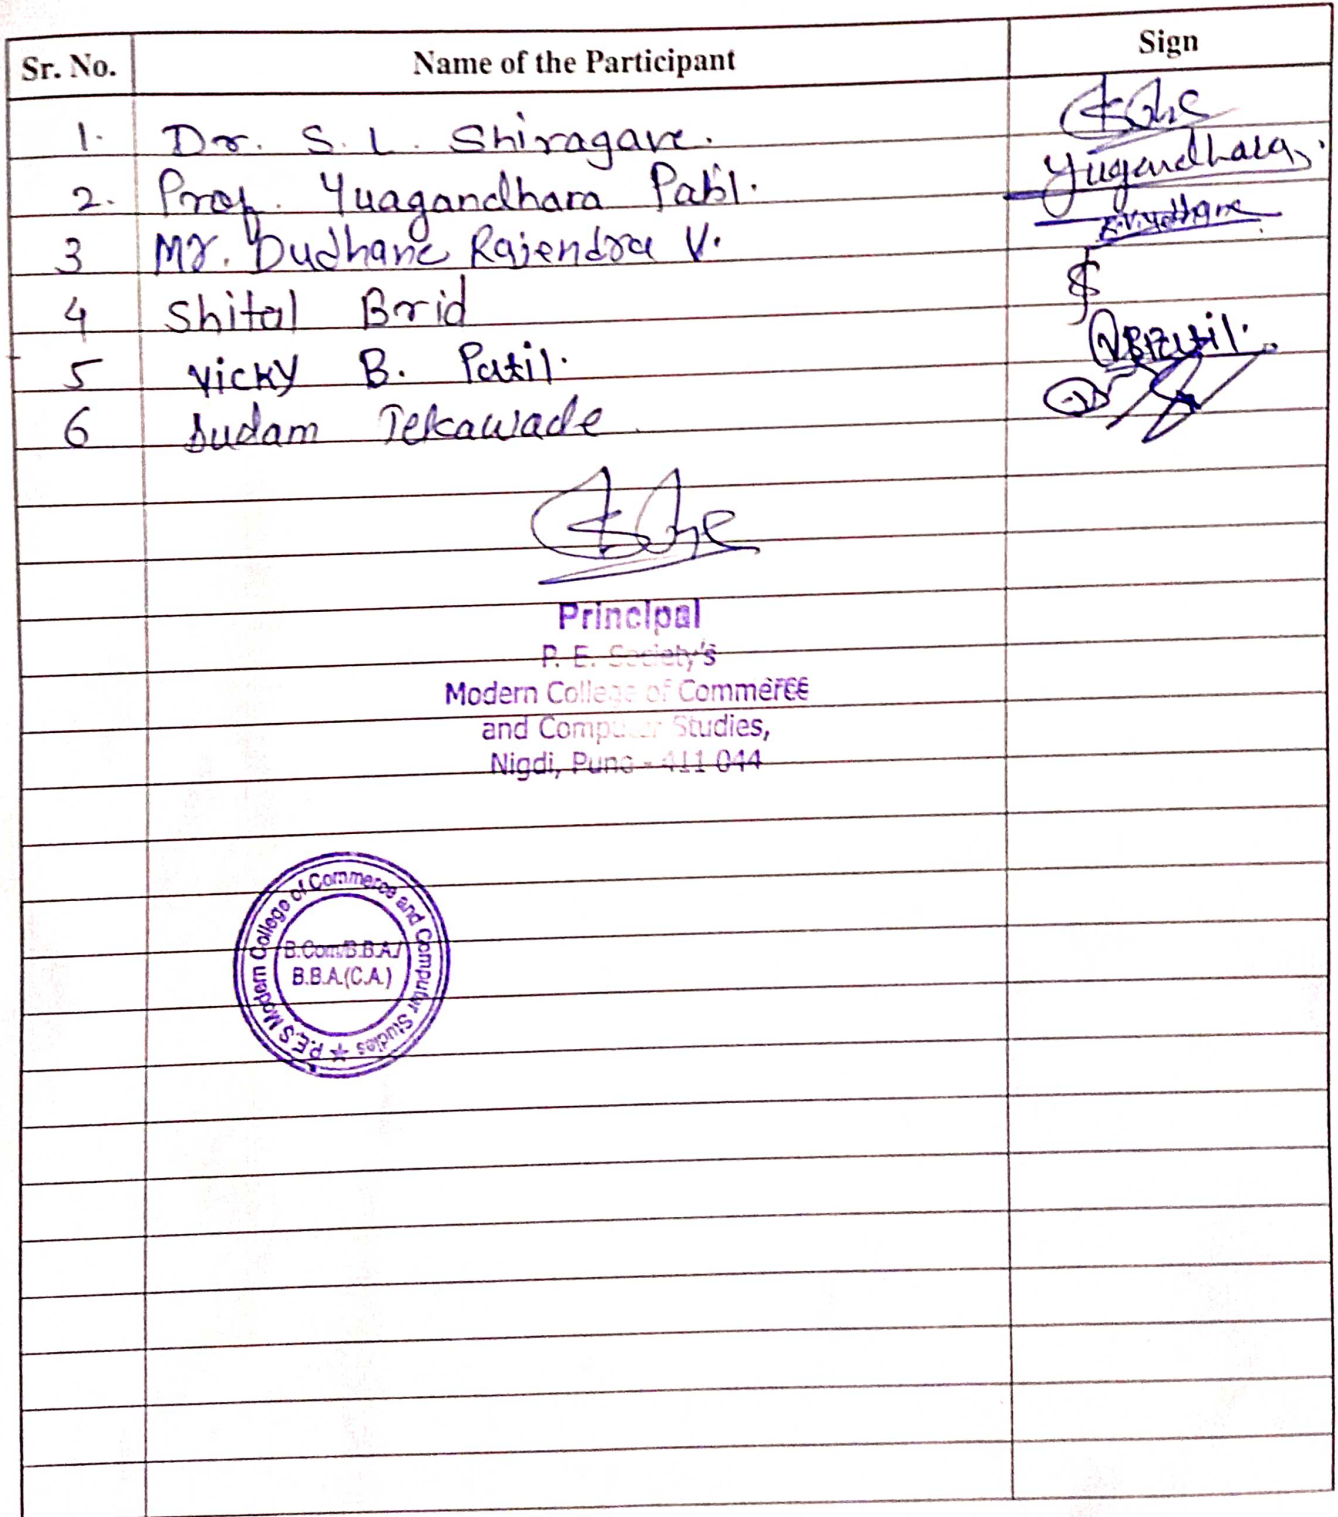 Sr. No. Name of the Participant Sign
1. Dr. S. L. Shiragave.
2. Prof. Yuagandhara Patil. Yugandhara
3 Mr. Dudhane Rajendra V.
4 Shital Brid
5 Vicky B. Patil. VBPatil.
6 Sudam Tekawade
Principal
P. E. Society's
Modern College of Commerce
and Computer Studies,
Nigdi, Pune - 411 044
P.E.S Modern College of Commerce and Computer Studies ★
B.Com/B.B.A./
B.B.A.(C.A.)